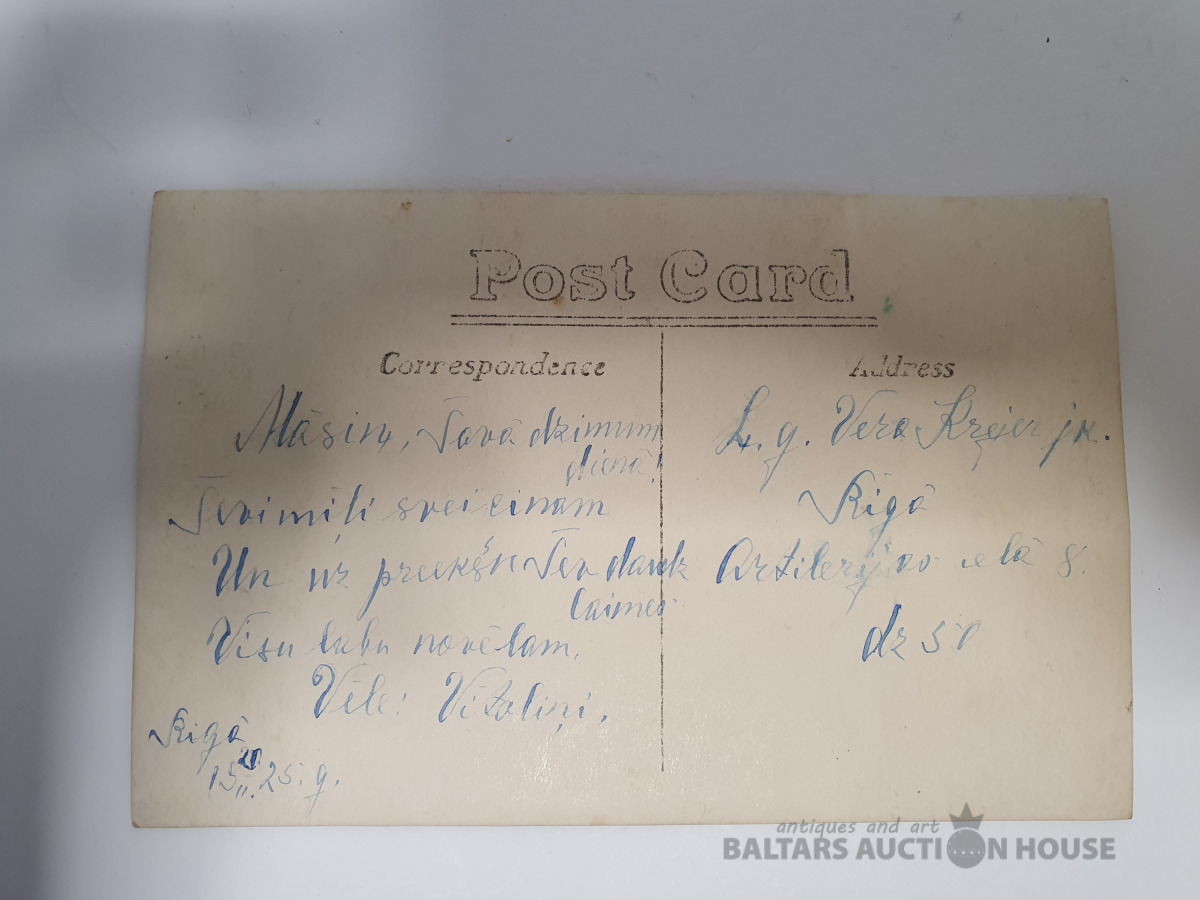 Post Card
Correspondence
Māsiņ, Tavā dzimum
dienā!
Tevi mīļi sveicinam
Un uz preekšu Tev daudz
laimes
Visu labu novēlam.
Vēle: Vītoliņi.
Rīgā
20
15 II. 25. g.
Address
L. g. Vera Krejer jk.
Rīgā
Artilerijas ielā 8.
dz 50
antiques and art
BALTARS AUCTION HOUSE